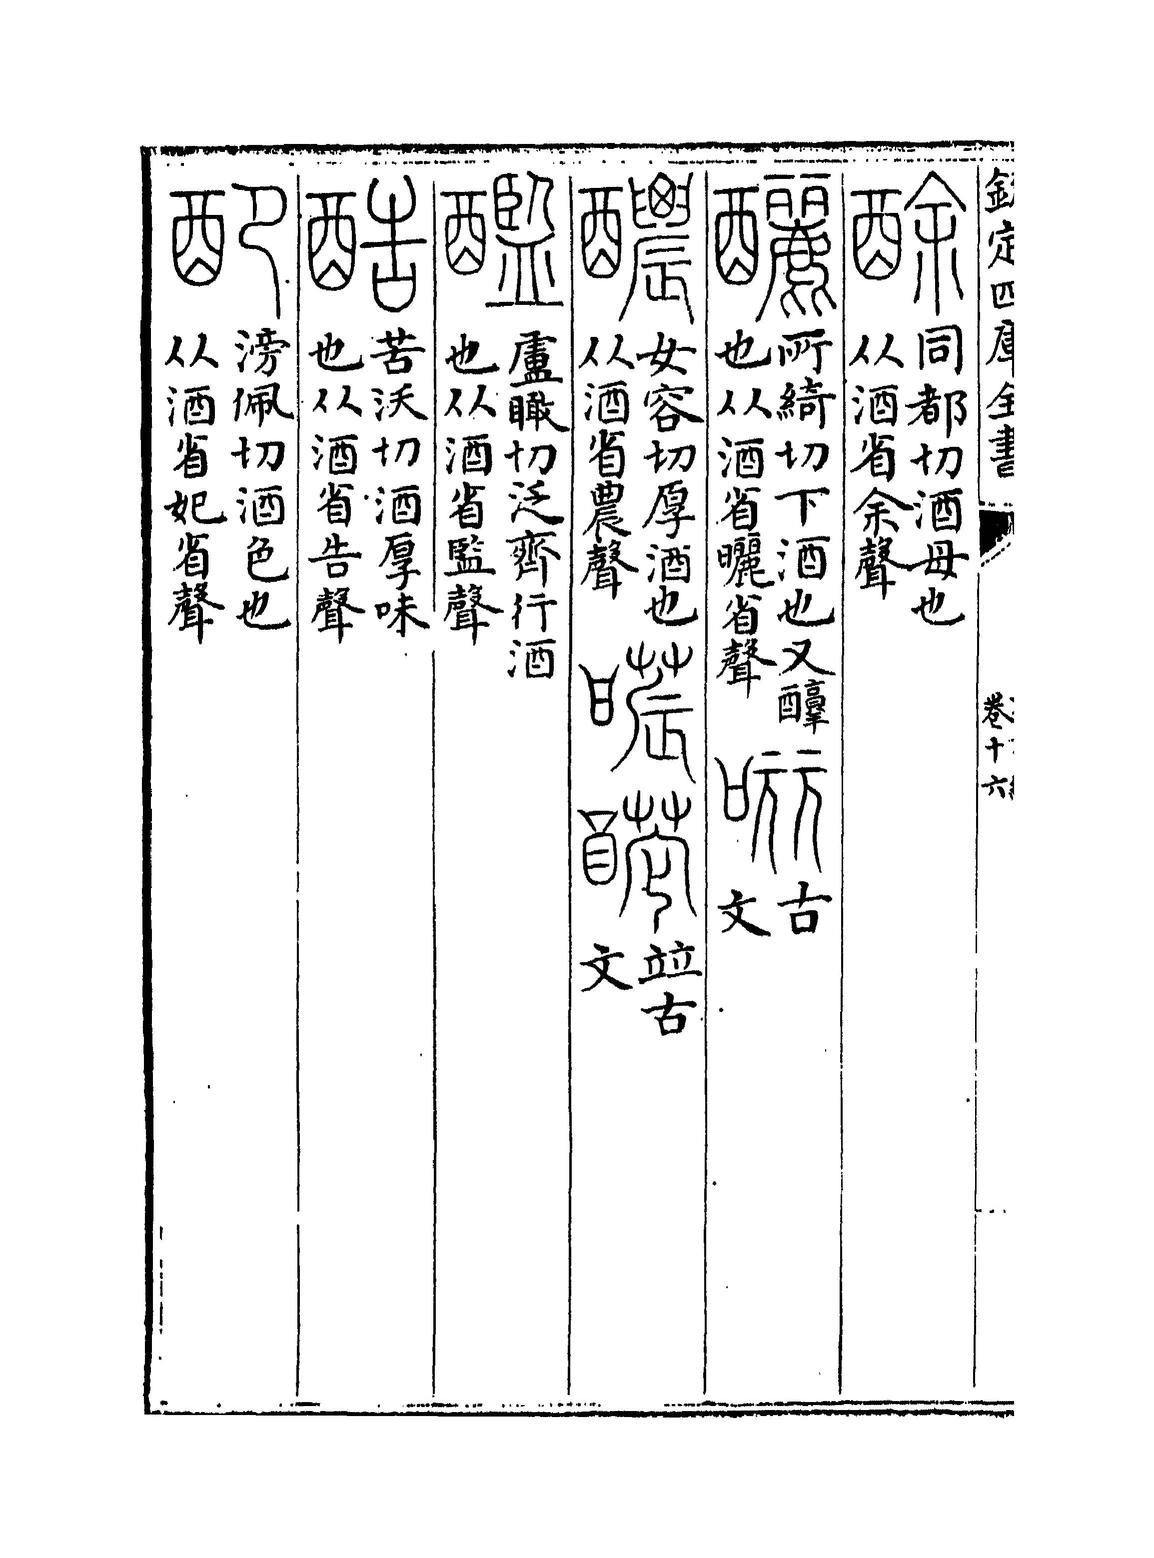 欽定四庫全書
卷十六
酴 同都切酒母也
从酒省余聲
釃 所綺切下酒也又醇
也从酒省曬省聲 古
文
醲 女容切厚酒也
从酒省農聲 竝古
文
𨣨 盧瞰切泛齊行酒
也从酒省監聲
酷 苦沃切酒厚味
也从酒省告聲
配 滂佩切酒色也
从酒省妃省聲